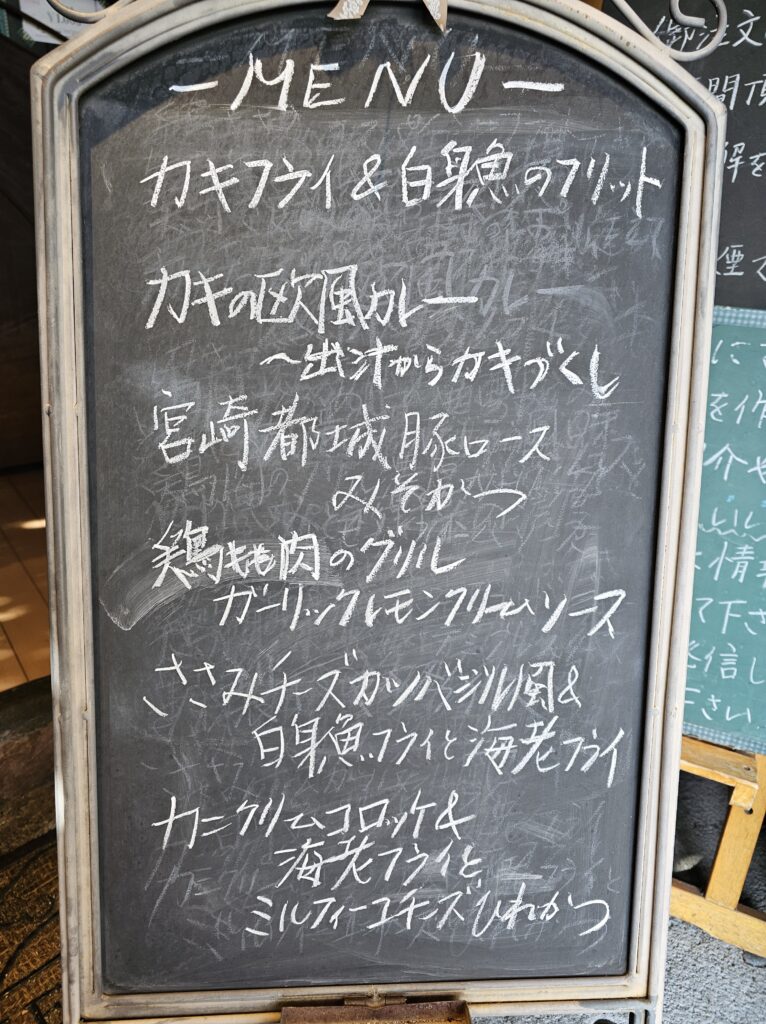 - MENU -
カキフライ&白身魚のフリット
カキの欧風カレー
〜出汁からカキづくし
宮崎都城豚ロース
みそかつ
鶏もも肉のグリル
ガーリックレモンクリームソース
ささみチーズカツバジル風&
白身魚フライと海老フライ
カニクリームコロッケ&
海老フライと
ミルフィーユチーズひれかつ
御注文
間頂
解を
煙で
に
を作
介や
いし
情報
て下さ
発信し
下さい